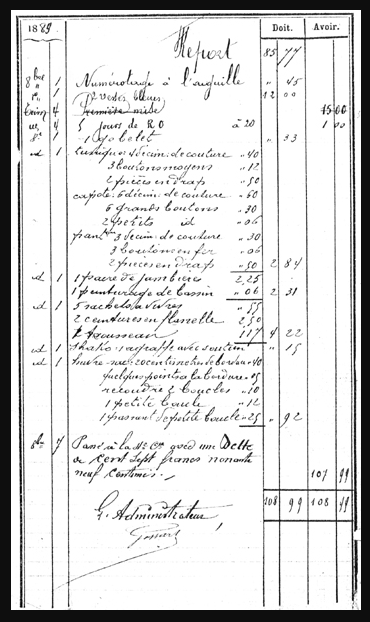 1889 Doit. Avoir.
Report 85 77
8bre 1 Numérotage à l'aiguille " 45
2 vestes bleues 12 00
4 Première mise 15 00
4 5 jours de R O à 20 1 00
1 1 Gobelet " 33
id 1 tunique 4 décim. de couture " 40
3 boutons moyens " 12
2 pièces en drap " 50
capote 6 décim. de couture " 60
6 grands boutons " 30
2 petits id " 06
pant. 3 décim. de couture " 30
3 boutons en fer " 06
2 pièces en drap " 50 2 84
id 1 1 paire de jambières 2,25
1 peinturage de bassin " 06 2 31
id 1 5 sachets à vivres " 55
2 ceintures en flanelle 2,50
1 trousseau 1 17 4 22
id 1 Shako 1 agraffe avec soutien " 15
id 1 20 centimètres de bordure " 40
quelques points à la bordure " 05
recoudre 2 boucles " 10
1 petite boucle " 12
1 passant de petite boucle " 25 " 92
7 Passé à la Cie avec une Dette
de cent sept francs nonante
neuf centimes. 107 99
108 99 108 99
L'Administrateur,